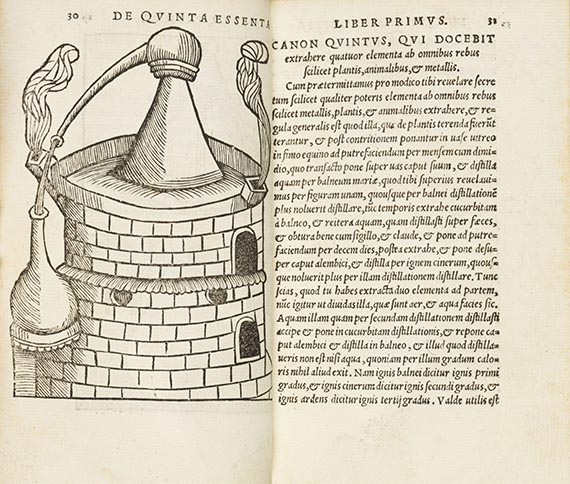 30 DE QVINTA ESSENTA
LIBER PRIMVS. 31
CANON QVINTVS, QVI DOCEBIT
extrahere quatuor elementa ab omnibus rebus
scilicet plantis, animalibus, & metallis.
Cum prætermittamus pro modico tibi revelare secre
tum scilicet qualiter poteris elementa ab omnibus rebus
scilicet metallis, plantis, & animalibus extrahere, & re-
gula generalis est quod illa, quæ de plantis terenda fuerūt
terantur, & post contritionem ponantur in uase uitreo
in fimo equino ad putrefaciendum per mensem cum dimi-
dio, quo transacto pone super uas caput suum, & distilla
aquam per balneum mariæ, quod tibi superius reuelaui-
mus per figuram unam, quousque per balnei distillationē
plus noluerit distillare, tūc temporis extrahe cucurbitam
à balneo, & reitera aquam, quam distillasti super fæces,
& obtura bene cum sigillo, & claude, & pone ad putre-
faciendum per decem dies, postea extrahe, & pone desu-
per caput alembici, & distilla per ignem cinerum, quous-
que noluerit plus per illam distillationem distillare. Tunc
scias, quod tu habes extracta duo elementa ad partem,
nūc igitur ut diuidas illa, quæ sunt aer, & aqua facies sic.
Aquam illam quam per secundam distillationem distillasti
accipe & pone in cucurbitam distillationis, & repone ca-
put alembici & distilla in balneo, & illud quod distilla-
ueris non est nisi aqua, quoniam per illum gradum calo-
ris nihil aliud exit. Nam ignis balnei dicitur ignis primi
gradus, & ignis cinerum dicitur ignis secundi gradus, &
ignis ardens dicitur ignis tertij gradus. Valde utilis est